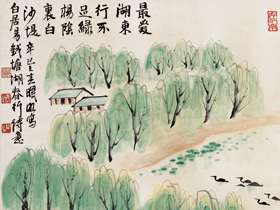 最愛
湖東
行不
足綠
楊陰
裏白
沙堤 辛巳 寫
白居易錢塘湖春行詩意